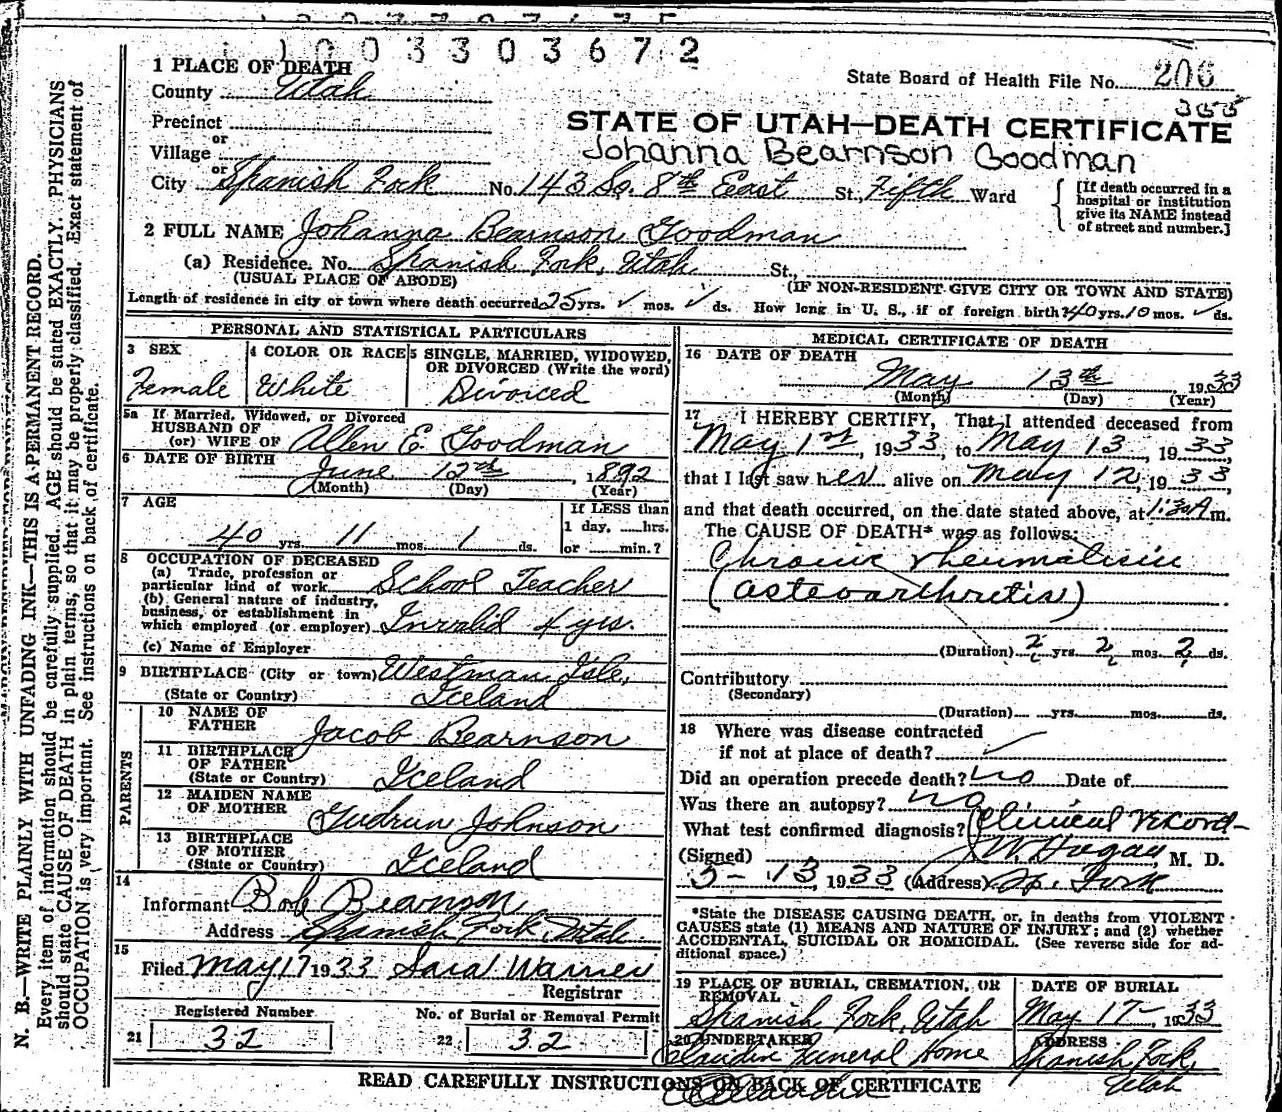 1003303672
1 PLACE OF DEATH
County Utah
State Board of Health File No. 206
355
Precinct
or
Village
STATE OF UTAH—DEATH CERTIFICATE
Johanna Bearnson Goodman
or
City Spanish Fork No. 143 So. 8th East St., Fifth Ward
[If death occurred in a hospital or institution give its NAME instead of street and number.]
2 FULL NAME Johanna Bearnson Goodman
(a) Residence. No. Spanish Fork, Utah St.,
(USUAL PLACE OF ABODE) (IF NON-RESIDENT GIVE CITY OR TOWN AND STATE)
Length of residence in city or town where death occurred 25 yrs. ✓ mos. ✓ ds. How long in U. S., if of foreign birth? 40 yrs. 10 mos. ✓ ds.
PERSONAL AND STATISTICAL PARTICULARS
3 SEX
Female
4 COLOR OR RACE
White
5 SINGLE, MARRIED, WIDOWED,
OR DIVORCED (Write the word)
Divorced
5a If Married, Widowed, or Divorced
HUSBAND OF
(or) WIFE OF Allen E. Goodman
6 DATE OF BIRTH
June 12th, 1892
(Month) (Day) (Year)
7 AGE
40 yrs. 11 mos. 1 ds.
If LESS than
1 day, ......hrs.
or ......min.?
8 OCCUPATION OF DECEASED
(a) Trade, profession or
particular kind of work School Teacher
(b) General nature of industry,
business, or establishment in
which employed (or employer) Invalid 4 yrs.
(c) Name of Employer
9 BIRTHPLACE (City or town) Westman Isle,
(State or Country) Iceland
PARENTS
10 NAME OF
FATHER Jacob Bearnson
11 BIRTHPLACE
OF FATHER
(State or Country) Iceland
12 MAIDEN NAME
OF MOTHER Gudrun Johnson
13 BIRTHPLACE
OF MOTHER
(State or Country) Iceland
14
Informant Bob Bearnson
Address Spanish Fork, Utah
15
Filed May 17 1933 Sara Warner
Registrar
Registered Number
21 32
No. of Burial or Removal Permit
22 32
MEDICAL CERTIFICATE OF DEATH
16 DATE OF DEATH
May 13th, 1933
(Month) (Day) (Year)
17 I HEREBY CERTIFY, That I attended deceased from
May 1st, 1933, to May 13, 1933,
that I last saw her alive on May 12, 1933,
and that death occurred, on the date stated above, at 1:30 A m.
The CAUSE OF DEATH* was as follows:
Chronic rheumatism
(osteoarthritis)
(Duration) 2 yrs. 2 mos. 2 ds.
Contributory
(Secondary)
(Duration) yrs. mos. ds.
18 Where was disease contracted
if not at place of death?
Did an operation precede death? no Date of
Was there an autopsy? no
What test confirmed diagnosis? Clinical record
(Signed) J.W. Hagan, M. D.
5-13, 1933 (Address) Sp. Fork
*State the DISEASE CAUSING DEATH, or, in deaths from VIOLENT
CAUSES state (1) MEANS AND NATURE OF INJURY; and (2) whether
ACCIDENTAL, SUICIDAL OR HOMICIDAL. (See reverse side for ad-
ditional space.)
19 PLACE OF BURIAL, CREMATION, OR
REMOVAL
Spanish Fork, Utah
DATE OF BURIAL
May 17- 1933
20 UNDERTAKER
Claudin Funeral Home
ADDRESS
Spanish Fork,
Utah
READ CAREFULLY INSTRUCTIONS ON BACK OF CERTIFICATE
N. B.—WRITE PLAINLY WITH UNFADING INK—THIS IS A PERMANENT RECORD.
Every item of information should be carefully supplied. AGE should be stated EXACTLY. PHYSICIANS
should state CAUSE OF DEATH in plain terms, so that it may be properly classified. Exact statement of
OCCUPATION is very important. See instructions on back of certificate.